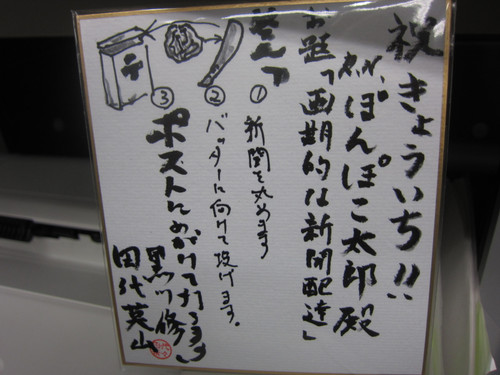 祝きょういち!!
ぽんぽこ太郎殿
お題「画期的な新聞配達」
答え
①新聞を丸めます
②バッターに向けて投げます。
③ポストにめがけて打ちます
〒
黒川修
田代英山